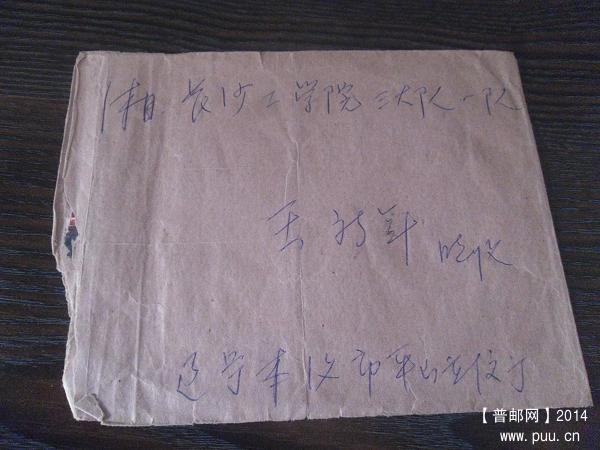 湘 长沙工学院三大队一队
王 收
辽宁本溪市平山
【普邮网】2014
www.puu.cn